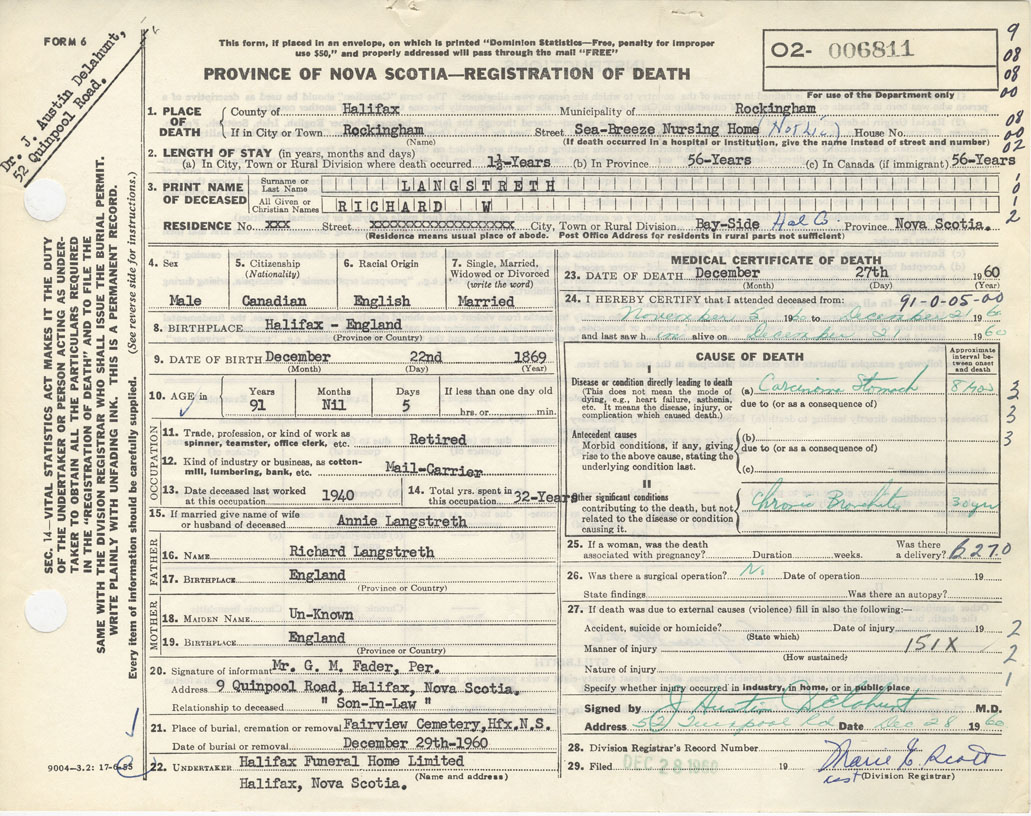 FORM 6
Dr. J. Austin Delahunt,
52 Quinpool Road.
This form, if placed in an envelope, on which is printed "Dominion Statistics—Free, penalty for improper
use $50," and properly addressed will pass through the mail "FREE"
PROVINCE OF NOVA SCOTIA—REGISTRATION OF DEATH
02- 006811
For use of the Department only
9
08
08
00
08
00
02
1. PLACE OF DEATH
County of Halifax Municipality of Rockingham
If in City or Town Rockingham Street Sea-Breeze Nursing Home House No.
(Name) (If death occurred in a hospital or institution, give the name instead of street and number)
2. LENGTH OF STAY (in years, months and days)
(a) In City, Town or Rural Division where death occurred 1½-Years (b) In Province 56-Years (c) In Canada (if immigrant) 56-Years
3. PRINT NAME OF DECEASED
Surname or Last Name LANGSTRETH
All Given or Christian Names RICHARD W
RESIDENCE No. xxx Street xxxxxxxxxxxxxxxxxxx City, Town or Rural Division Bay-Side Hal Co. Province Nova Scotia.
(Residence means usual place of abode. Post Office Address for residents in rural parts not sufficient)
SEC. 14—VITAL STATISTICS ACT MAKES IT THE DUTY
OF THE UNDERTAKER OR PERSON ACTING AS UNDER-
TAKER TO OBTAIN ALL THE PARTICULARS REQUIRED
IN THE "REGISTRATION OF DEATH" AND TO FILE THE
SAME WITH THE DIVISION REGISTRAR WHO SHALL ISSUE THE BURIAL PERMIT.
WRITE PLAINLY WITH UNFADING INK. THIS IS A PERMANENT RECORD.
Every item of information should be carefully supplied. (See reverse side for instructions.)
4. Sex
Male
5. Citizenship
(Nationality)
Canadian
6. Racial Origin
English
7. Single, Married,
Widowed or Divorced
(write the word)
Married
8. BIRTHPLACE Halifax - England
(Province or Country)
9. DATE OF BIRTH December 22nd 1869
(Month) (Day) (Year)
10. AGE in
Years Months Days If less than one day old
91 N11 5 hrs. or min.
OCCUPATION
11. Trade, profession, or kind of work as
spinner, teamster, office clerk, etc. Retired
12. Kind of industry or business, as cotton-
mill, lumbering, bank, etc. Mail-Carrier
13. Date deceased last worked
at this occupation 1940
14. Total yrs. spent in
this occupation 32-Years
15. If married give name of wife
or husband of deceased Annie Langstreth
FATHER
16. NAME Richard Langstreth
17. BIRTHPLACE England
(Province or Country)
MOTHER
18. MAIDEN NAME Un-Known
19. BIRTHPLACE England
(Province or Country)
20. Signature of informant Mr. G. M. Fader, Per.
Address 9 Quinpool Road, Halifax, Nova Scotia.
Relationship to deceased " Son-In-Law "
21. Place of burial, cremation or removal Fairview Cemetery, Hfx. N.S.
Date of burial or removal December 29th-1960
22. UNDERTAKER Halifax Funeral Home Limited
(Name and address)
Halifax, Nova Scotia.
MEDICAL CERTIFICATE OF DEATH
23. DATE OF DEATH December 27th 1960
(Month) (Day) (Year)
24. I HEREBY CERTIFY that I attended deceased from: 91-0-05-00
November 5 1960 to December 21 1960
and last saw him alive on December 21 1960
CAUSE OF DEATH
Approximate
interval be-
tween onset
and death
I
Disease or condition directly leading to death
(This does not mean the mode of
dying, e.g., heart failure, asthenia,
etc. It means the disease, injury, or
complication which caused death.)
(a) Carcinoma Stomach 8 mos
due to (or as a consequence of)
Antecedent causes
Morbid conditions, if any, giving
rise to the above cause, stating the
underlying condition last.
(b)
due to (or as a consequence of)
(c)
II
Other significant conditions
contributing to the death, but not
related to the disease or condition
causing it.
Chronic Bronchitis 30 yrs
25. If a woman, was the death
associated with pregnancy? Duration weeks. Was there
a delivery? B270
26. Was there a surgical operation? No Date of operation 19
State findings Was there an autopsy?
27. If death was due to external causes (violence) fill in also the following:—
Accident, suicide or homicide? Date of injury 19
(State which)
Manner of injury 151X
(How sustained)
Nature of injury
Specify whether injury occurred in industry, in home, or in public place
Signed by J Austin Delahunt M.D.
Address 52 Quinpool Rd Date Dec 28 1960
28. Division Registrar's Record Number
29. Filed DEC 28 1960 19 Marie E. Scott
(Division Registrar)
9004-3.2: 17-6-55